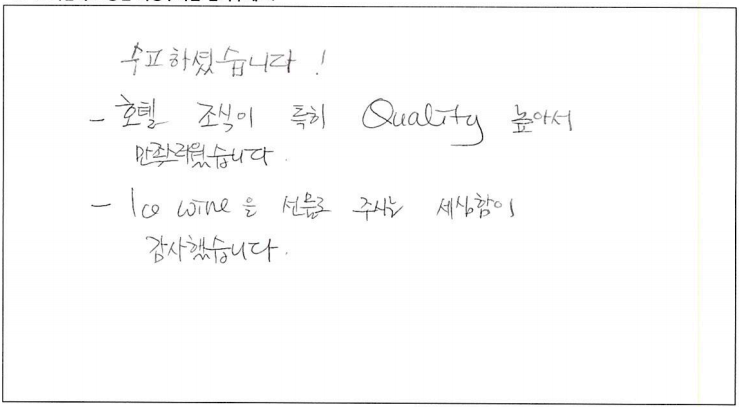 수고하셨습니다!
- 호텔 조식이 특히 Quality 높아서
만족스러웠습니다.
- Ice wine을 선물로 주시는 세심함이
감사했습니다.